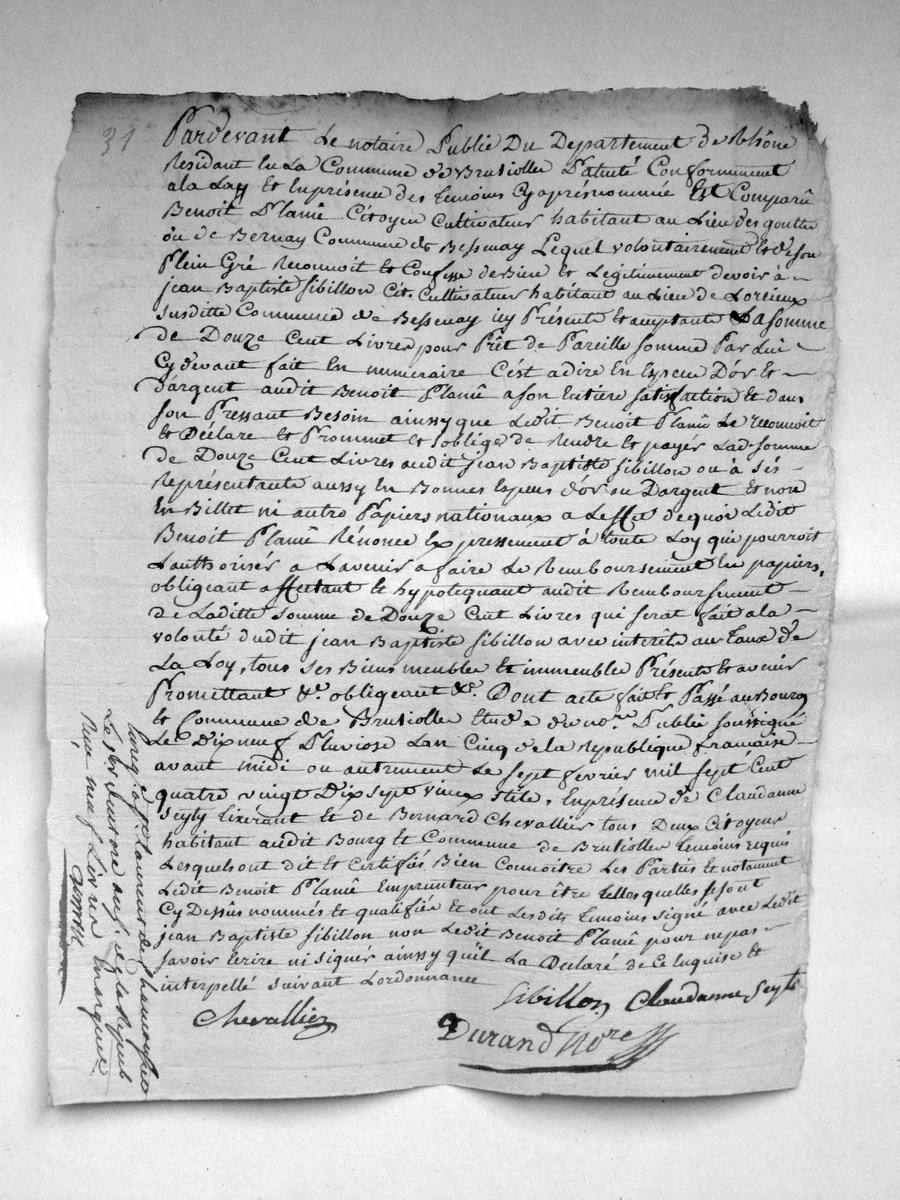 31
Pardevant Le notaire Public Du Departement de Rhône
Residant En La Commune de Brusiolle Patenté Conformement
a la Loy et En présence des temoins Cy aprés nommés Est Comparû
Benoit Plamê Citoyen Cultivateur habitant au Lieu des gouttes
ou de Bernay Commune de Bessenay Lequel volontairement et de son
Plein Gré Reconnoit et Confesse de Bien et Legitimment devoir à
jean Baptiste Sibillon Cit. Cultivateur habitant au Lieu de Lorieux
susditte Commune de Bessenay icy Présent et acceptant La Somme
de Douze Cent Livres pour Prêt de Pareille Somme Par Lui
Cydevant fait En numeraire C'est adire En Espece D'or et
Dargent audit Benoit Plamê a son Entiere satisfaction et dans
son Pressant Besoin ainssy que Ledit Benoit Plamê Le reconnoit
et Déclare et Prommet et s'oblige de Rendre et payer Lad. somme
de Douze Cent Livres audit jean Baptiste Sibillon ou à ses
Représentants aussy En Bonnes Especes d'or ou Dargent et non
En Billet ni autre Papiers nationaux a Leffet de quoi Ledit
Benoit Plamê Rénonce Expressement à toute Loy qui pourroit
Lauthoriser a Lavenir a faire Le Remboursement En papiers,
obligeant affectant et hypotequant audit Remboursement
de Laditte somme de Douze Cent Livres qui serat fait a la
volonté dudit jean Baptiste Sibillon avec interets au taux de
La Loy, tous ses Biens meubles et immeuble Présents et avenir
Promettant &c. obligeant &c. Dont acte fait et Passé au Bourg
et Commune de Brusiolle Etude du no.re Public soussigné
Le Dix neuf Pluviose Lan Cinq de la Republique francaise
avant midi ou autrement Le sept fevrier mil sept Cent
quatre vingt Dix sept vieux stile, En présence de Claudanne
Seyty tixérant et de Bernard Chevallier tous Deux Citoyens
habitant audit Bourg et Commune de Brusiolle temoins requis
Lesquels ont dit et Certifiés Bien Connoitre Les Parties et notamment
Ledit Benoit Plamê Emprunteur pour être telles quelles se sont
Cy Dessûs nommés et qualifiés et ont Lesdits temoins signé avec Ledit
jean Baptiste Sibillon non Ledit Benoit Plamê pour ne pas
savoir Ecrire ni signer ainssy qu'il La Déclaré de Ce Enquis et
interpellé suivant Lordonnance
Sibillon Claudanne Seyti
Chevallier
Durand No.re
Enreg. a
Le
neuf Livres